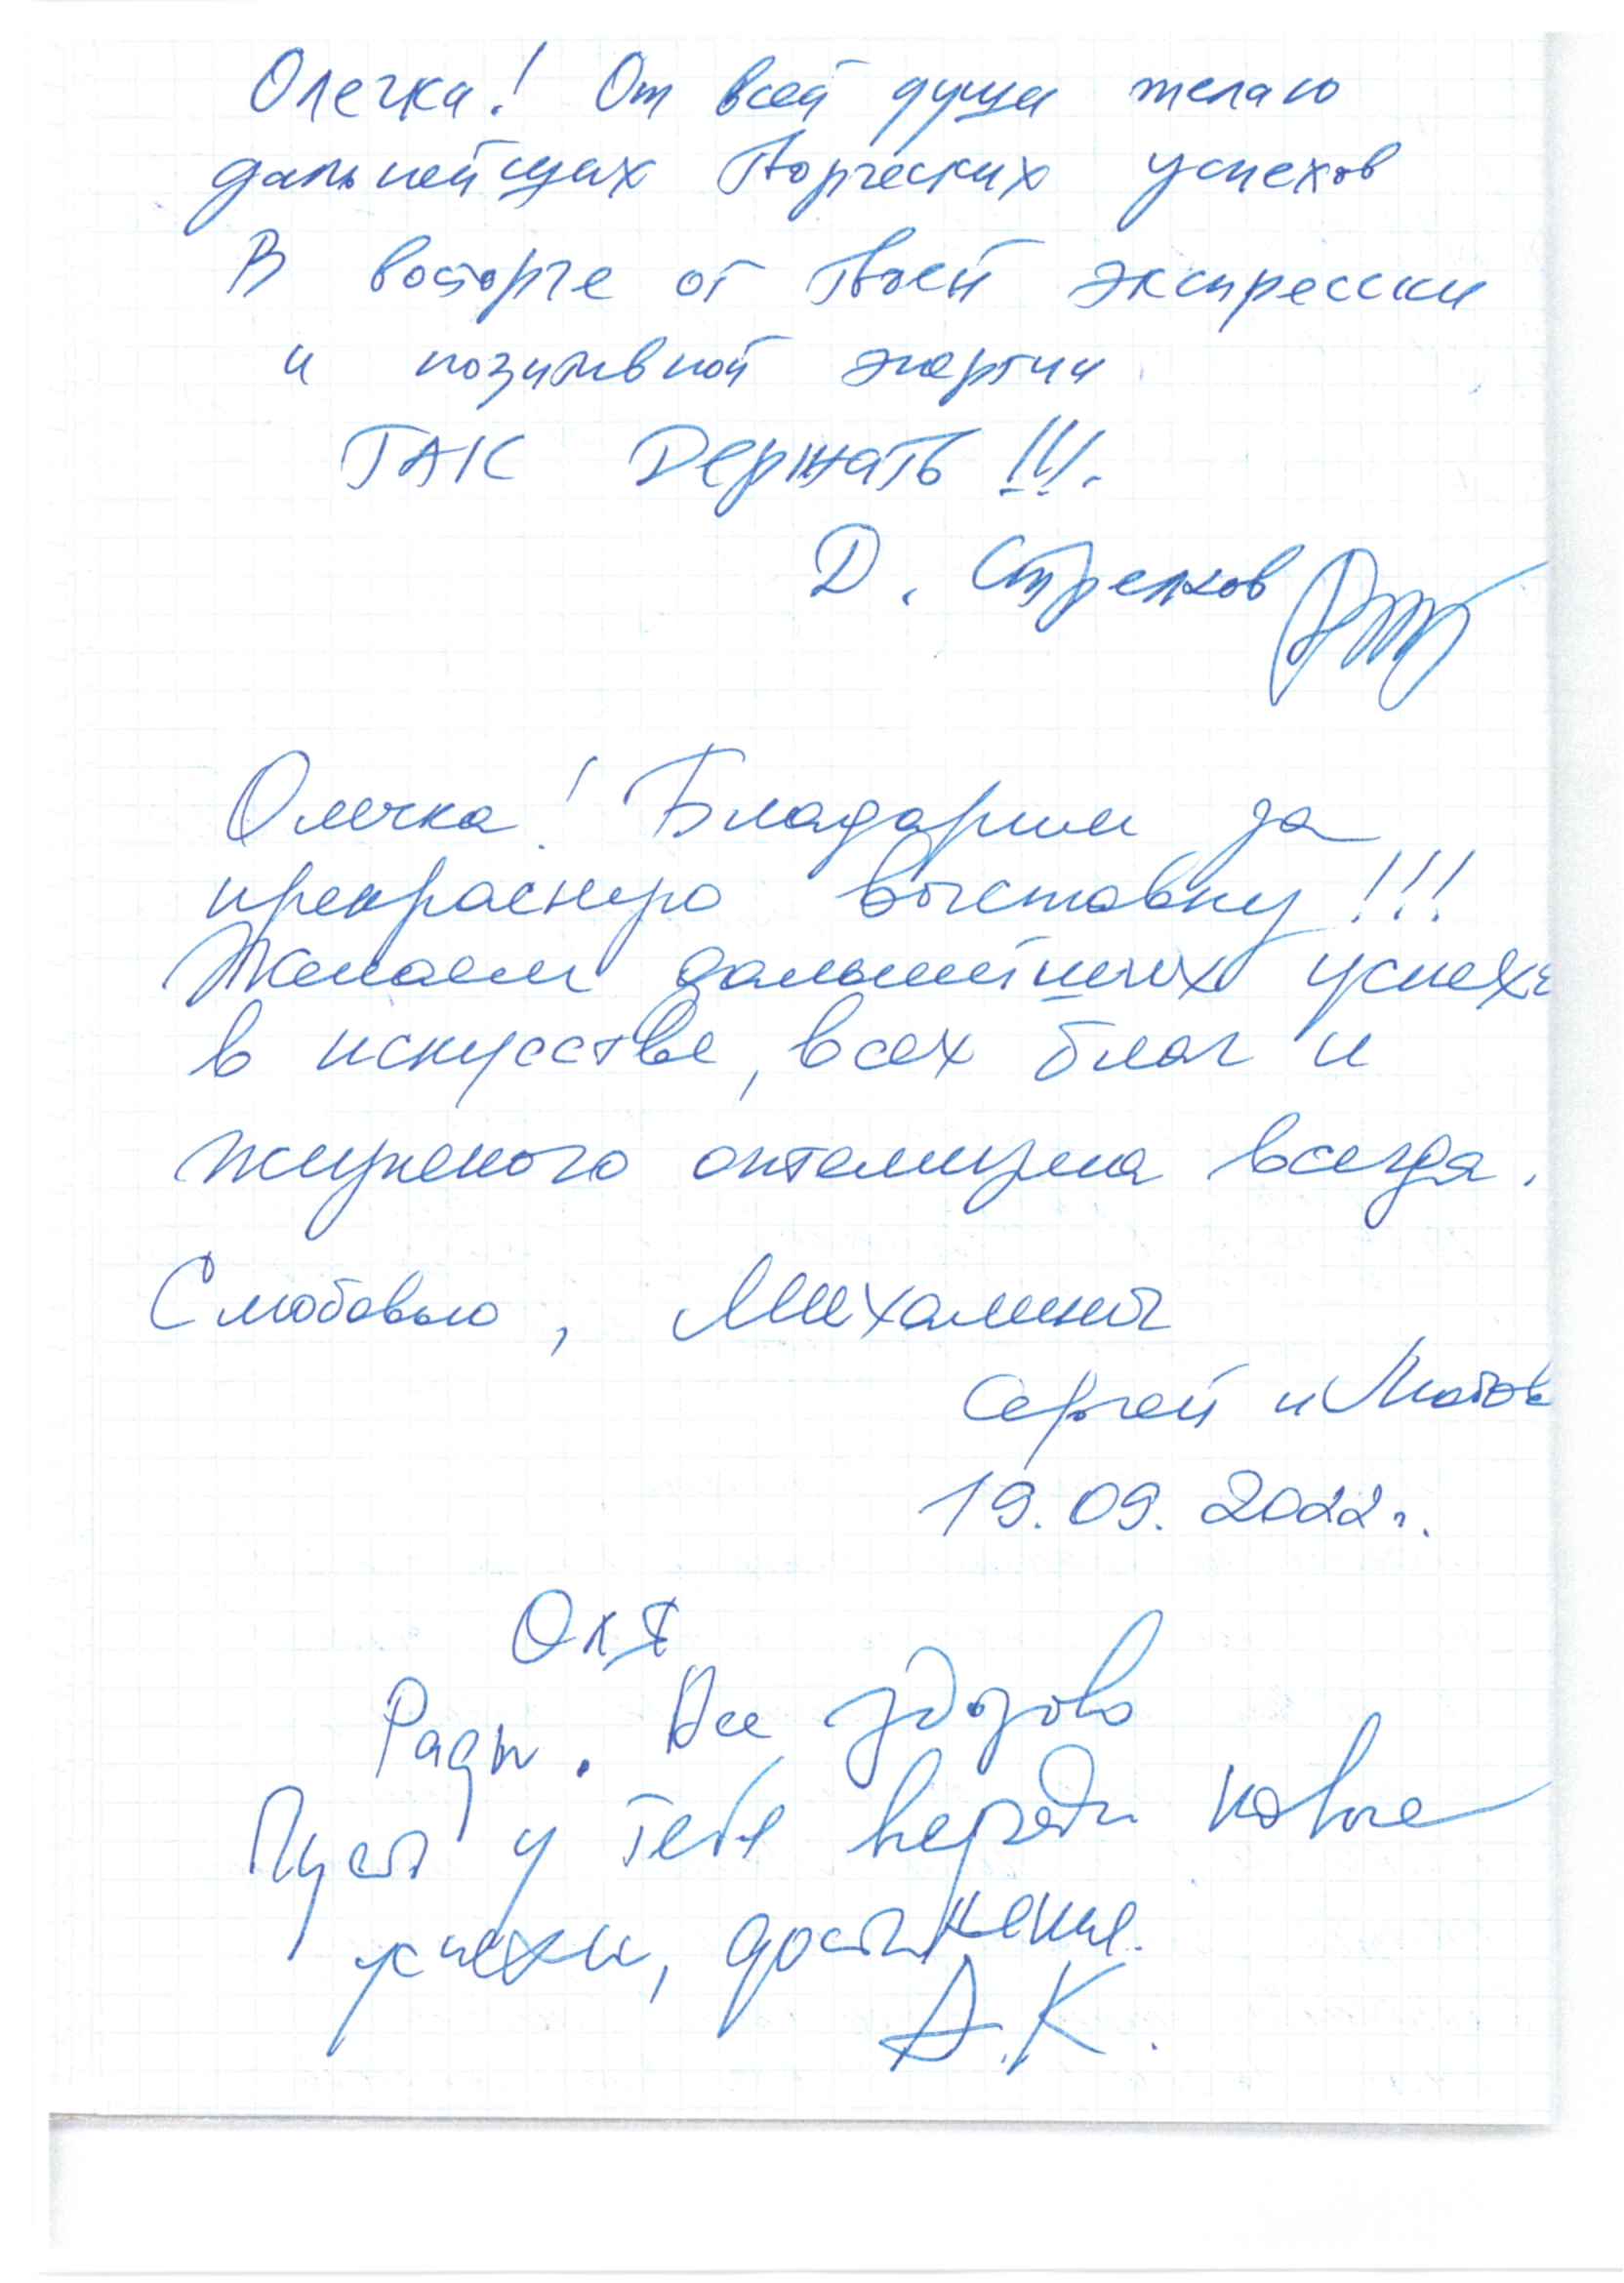 Олечка! От всей души желаю
дальнейших творческих успехов
В восторге от твоей экспрессии
и позитивной энергии
ТАК Держать !!!.
Д. Стрелков
Олечка! Благодарим за
прекрасную выставку!!!
Желаем дальнейших успехо
в искусстве, всех благ и
жизненого оптемизма всегда.
С любовью, Михалины
Сергей и Любов
19.09.2022 г.
Оля
Рады. Все здорово
Пусть у тебя впереди новые
успехи, достижения.
А.К.